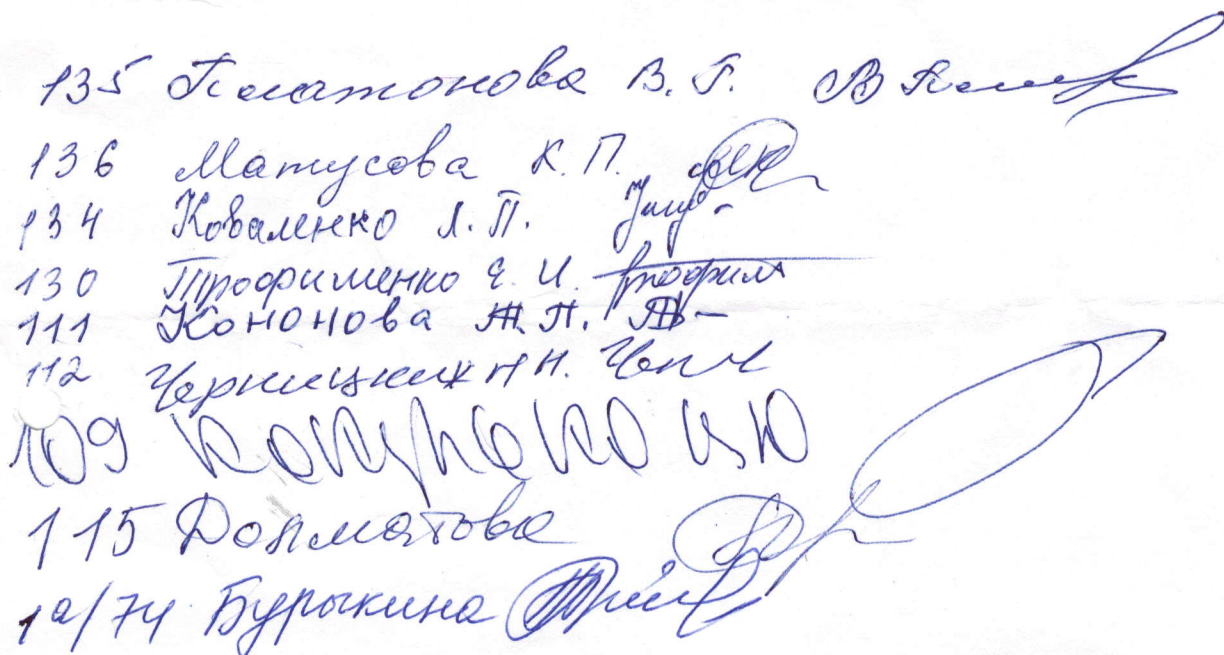 135 Платонова В. Г.
136 Матусова К. П.
134 Коваленко Л. П.
130 Трофименко Е. И. Трофим
111 Кононова Ж. П.
112 Черницких Н Н.
109
115 Долматова
1а/74 Бурыкина